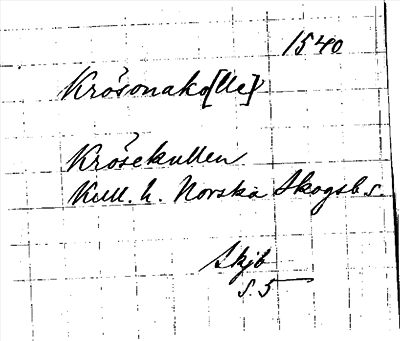 1540
Krösonako[lle]
Krösekullen
Kull. h. Norska Skogsb s.
Skjb
s. 5